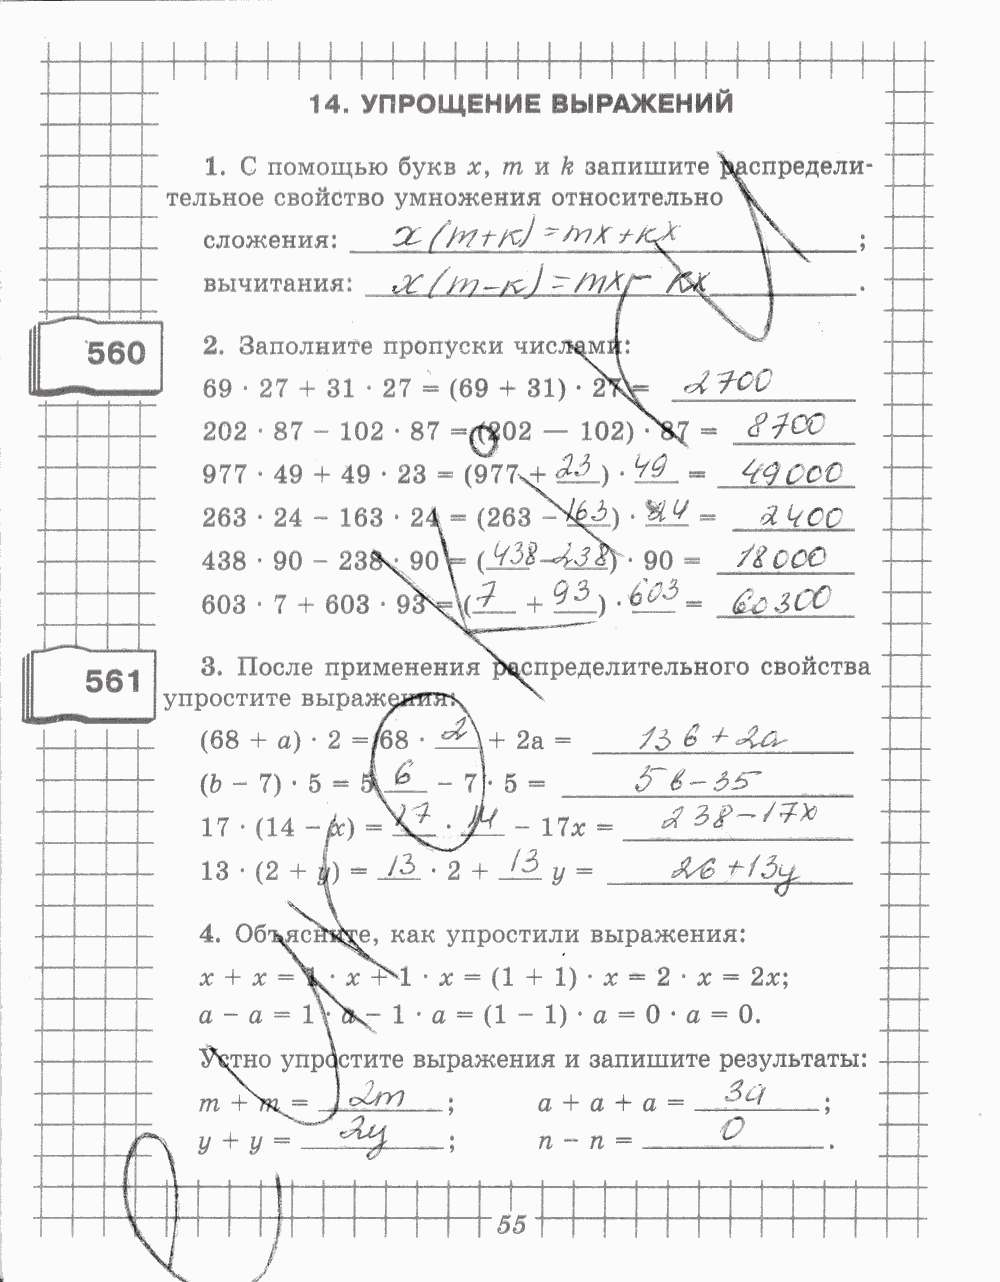 14. УПРОЩЕНИЕ ВЫРАЖЕНИЙ
1. С помощью букв x, m и k запишите распредели-
тельное свойство умножения относительно
сложения: x(m+к)=mx+кx ;
вычитания: x(m-к)=mx-кx .
560
2. Заполните пропуски числами:
69 · 27 + 31 · 27 = (69 + 31) · 27 = 2700
202 · 87 − 102 · 87 = (202 — 102) · 87 = 8700
977 · 49 + 49 · 23 = (977 + 23) · 49 = 49000
263 · 24 − 163 · 24 = (263 − 163) · 24 = 2400
438 · 90 − 238 · 90 = (438−238) · 90 = 18000
603 · 7 + 603 · 93 = (7 + 93) · 603 = 60300
561
3. После применения распределительного свойства
упростите выражения:
(68 + a) · 2 = 68 · 2 + 2a = 136+2a
(b − 7) · 5 = 5 в − 7 · 5 = 5в-35
17 · (14 − x) = 17 · 14 − 17x = 238-17x
13 · (2 + y) = 13 · 2 + 13 y = 26+13y
4. Объясните, как упростили выражения:
x + x = 1 · x + 1 · x = (1 + 1) · x = 2 · x = 2x;
a − a = 1 · a − 1 · a = (1 − 1) · a = 0 · a = 0.
Устно упростите выражения и запишите результаты:
m + m = 2m ; a + a + a = 3a ;
y + y = 2y ; n − n = 0 .
55